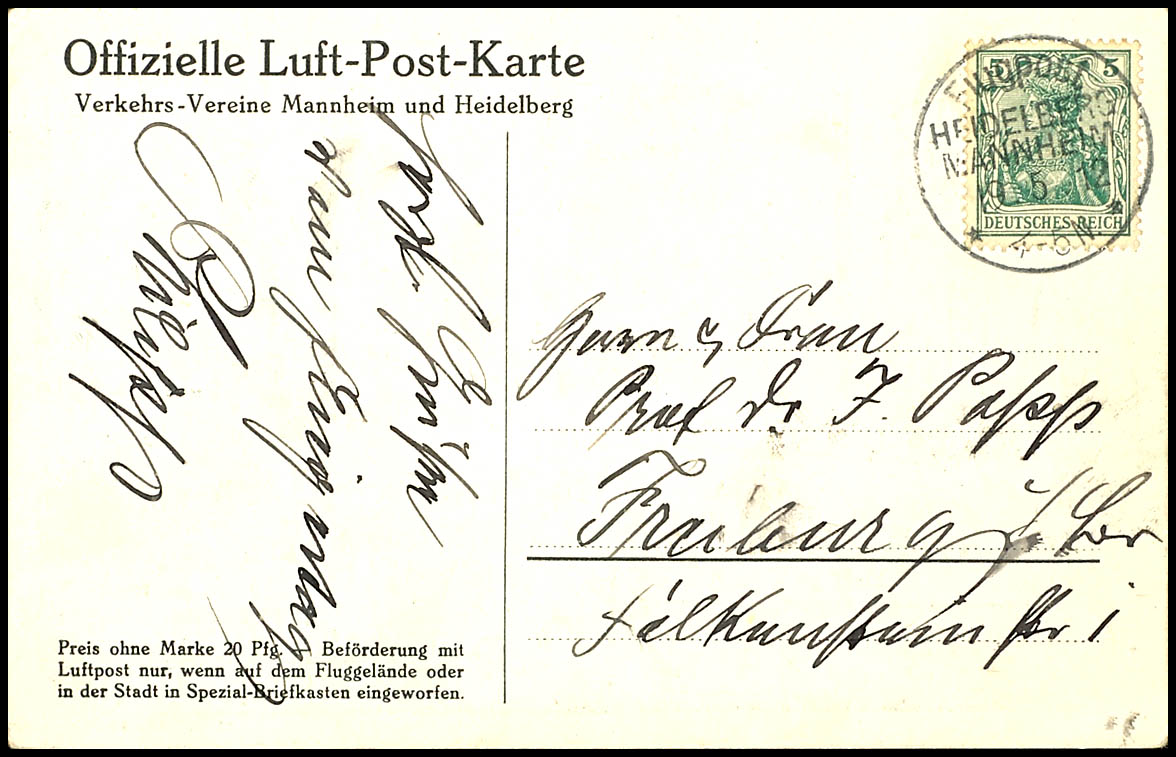 Offizielle Luft-Post-Karte
Verkehrs-Vereine Mannheim und Heidelberg
5 5
FLUGPOST
HEIDELBERG
MANNHEIM
19 5 12
4-5 N.
DEUTSCHES REICH
Herrn u Frau
Prof Dr J. Papp
Freiburg i/ Br
Falkensteinstr 1
Grüße
vom Flugplatz
Preis ohne Marke 20 Pfg. Beförderung mit
Luftpost nur, wenn auf dem Fluggelände oder
in der Stadt in Spezial-Briefkasten eingeworfen.